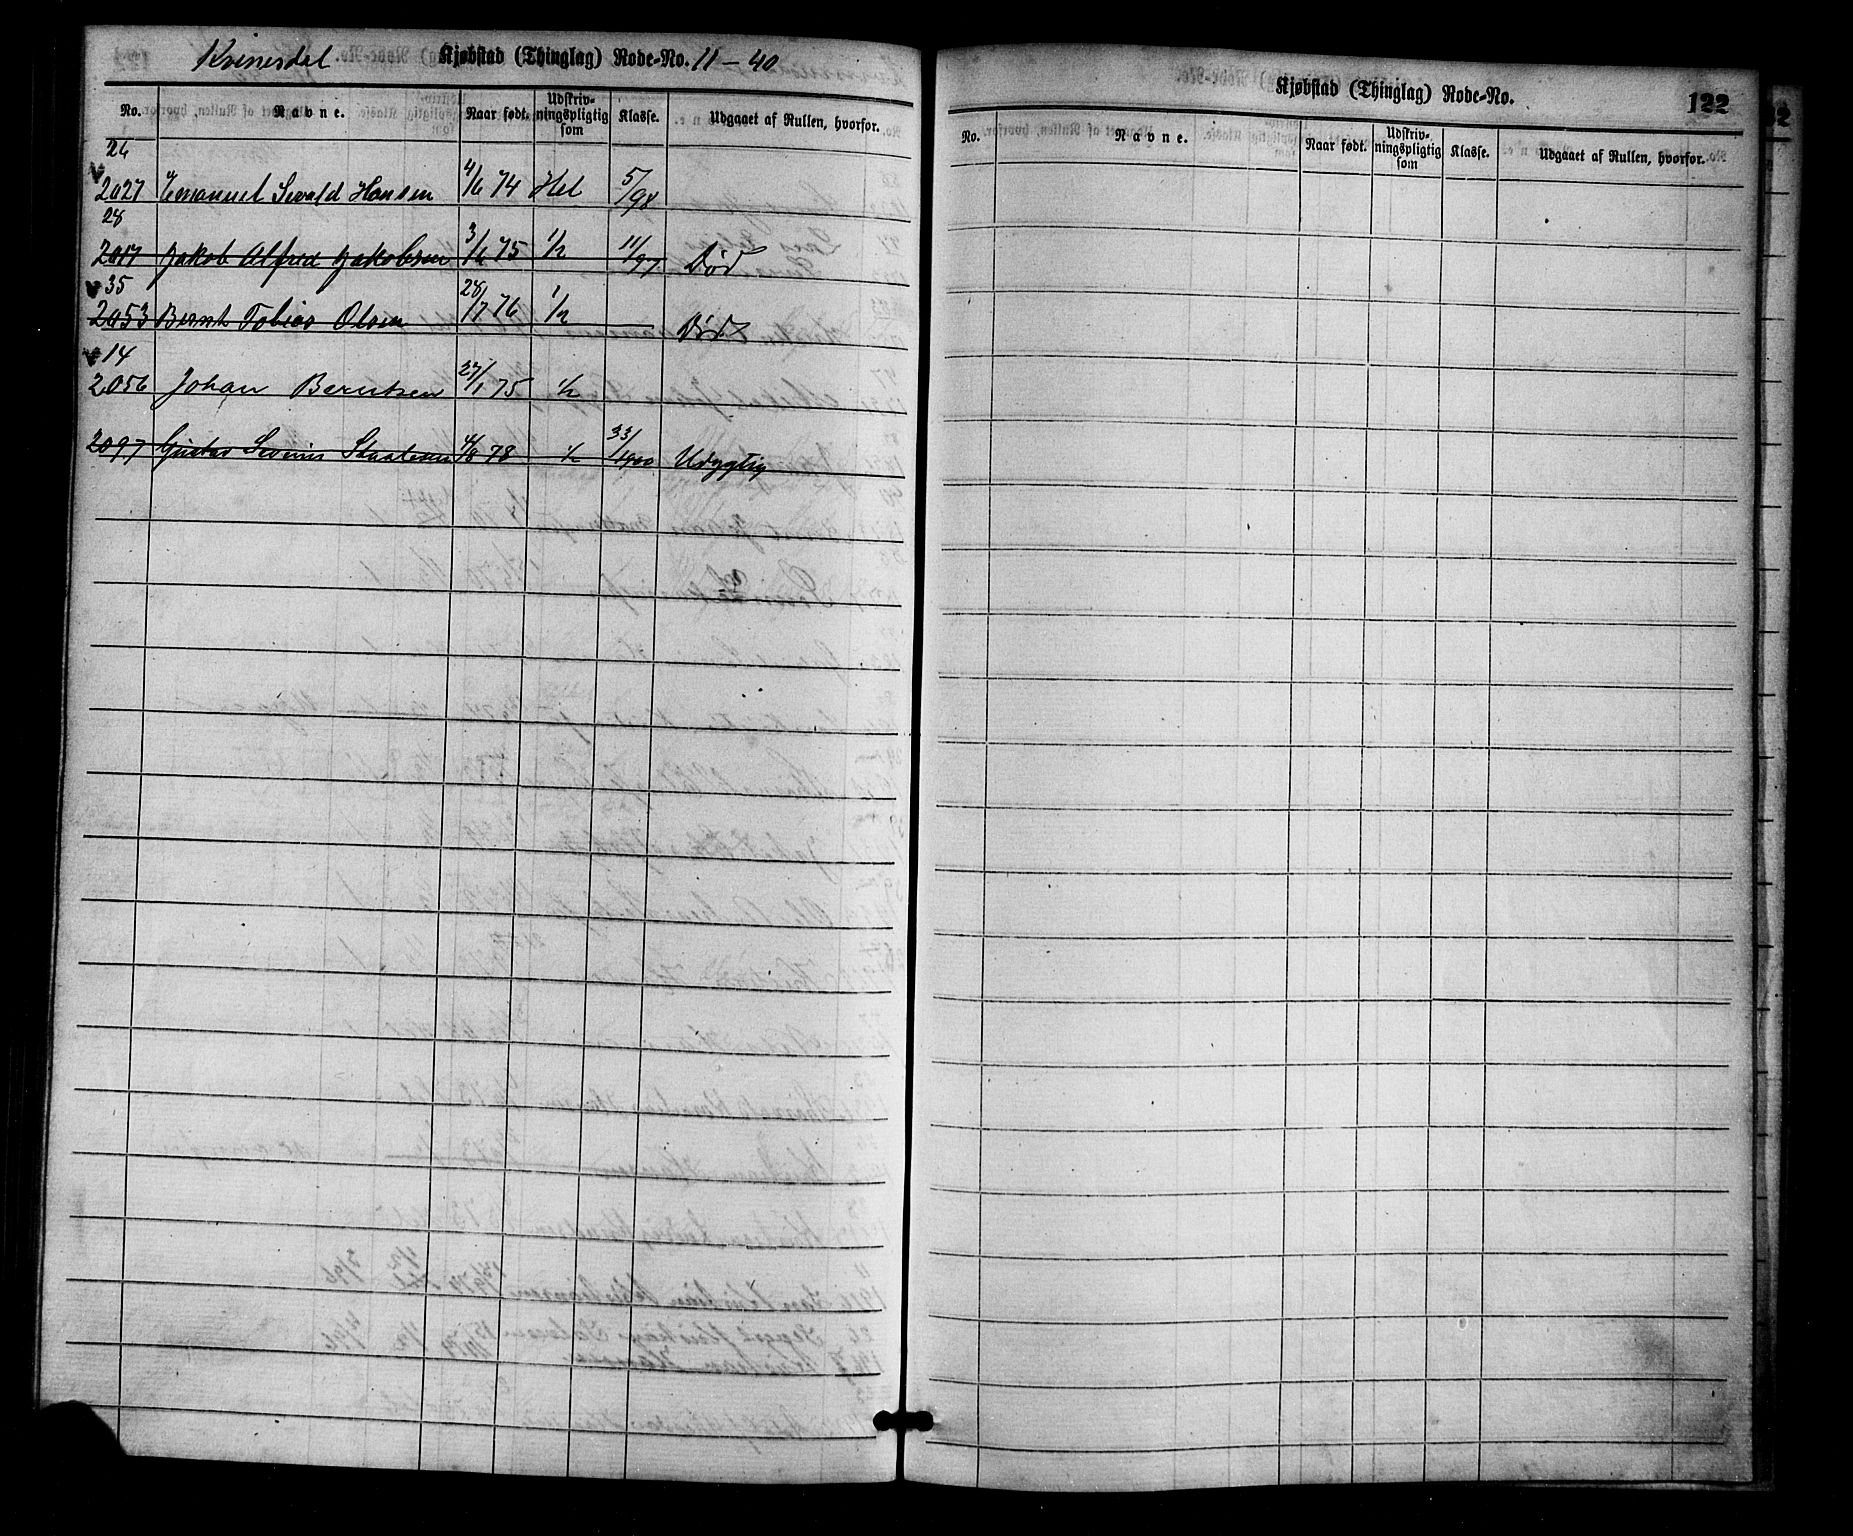 Kvinesdal Kjøbstad (Thinglag) Rode-No. 11 - 40
No. Navne. Naar født. Udskrivningspligtig som Klasse. Udgaaet af Rullen, hvorfor.
26
2027 Emanuel Sevald Hansen 4/6 74 Hel 5/98
28
2017 Jakob Alfred Jakobsen 3/6 75 1/2 11/97 Død
35
2053 Bernt Tobias Olsen 28/7 76 1/2 Død
14
2056 Johan Berntsen 27/1 75 1/2
2097 Gustav Severin 4/8 78 1/2 33/1900 Udygtig
Kjøbstad (Thinglag) Rode-No. 122
No. Navne. Naar født. Udskrivningspligtig som Klasse. Udgaaet af Rullen, hvorfor.